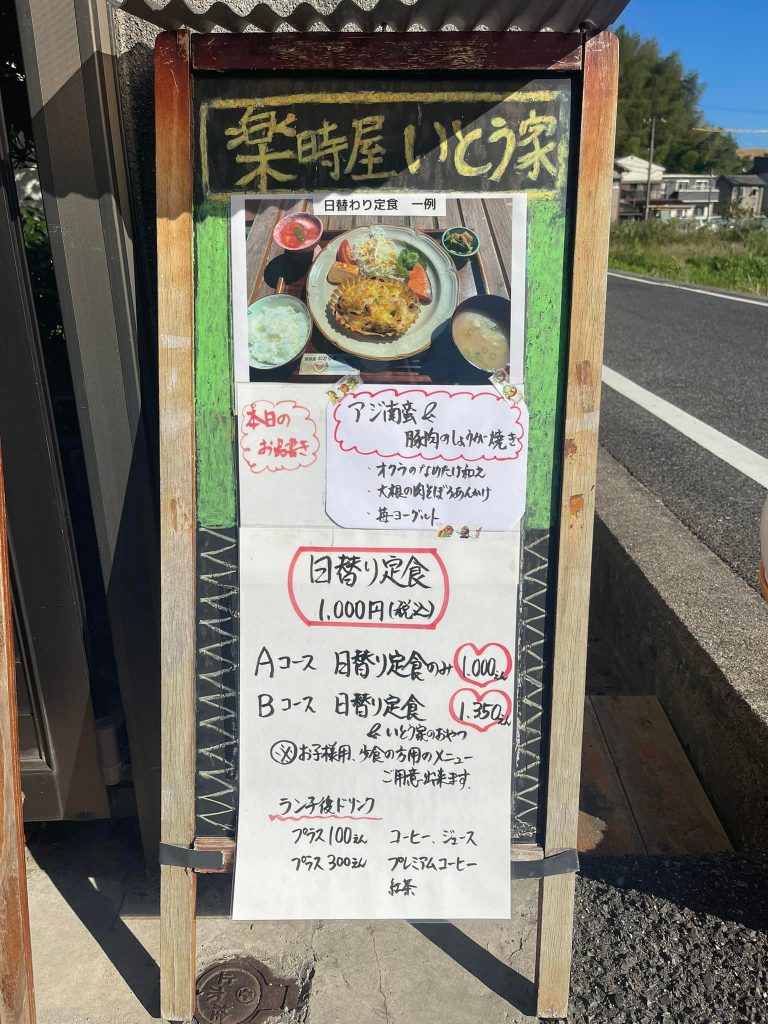 楽時屋 いとう家
日替わり定食 一例
本日の
お品書き
アジ南蛮&
豚肉のしょうが焼き
・オクラのなめたけ和え
・大根の肉そぼろあんかけ
・苺ヨーグルト
日替り定食
1,000円(税込)
Aコース 日替り定食のみ 1.000えん
Bコース 日替り定食 1.350えん
& いとう家のおやつ
※お子様用、少食の方用のメニュー
ご用意出来ます。
ランチ後ドリンク
プラス100えん コーヒー、ジュース
プラス300えん プレミアムコーヒー
紅茶